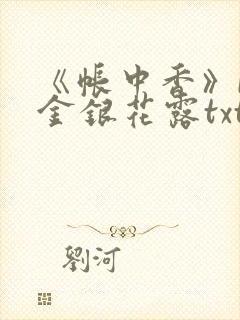 《帐中香》
金银花露txt
劉河